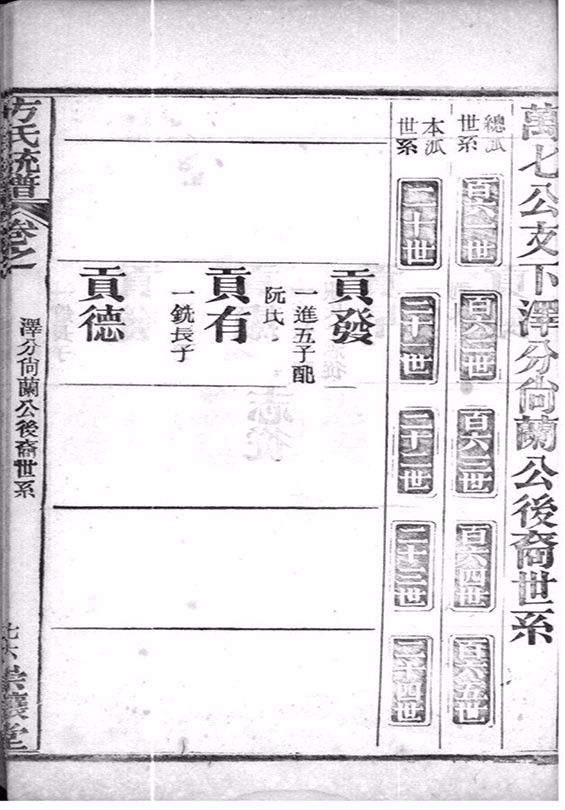 萬七公支下澤分尙蘭公後裔世系
總派世系
百六一世
百六二世
百六三世
百六四世
百六五世
本派世系
二十世
二十一世
二十二世
二十三世
二十四世
貢發
一進五子配
阮氏
貢有
一銑長子
貢德
方氏統譜
卷之
澤分尙蘭公後裔世系
七六
崇讓堂